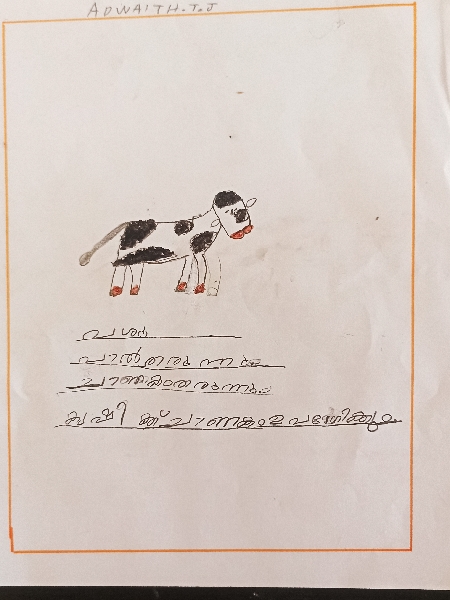 ADWAITH.T.J
പശു
പാൽ തരുന്നു
ചാണകം തരുന്നു
കൃഷിക്ക് ചാണകം ഉപയോഗിക്കും